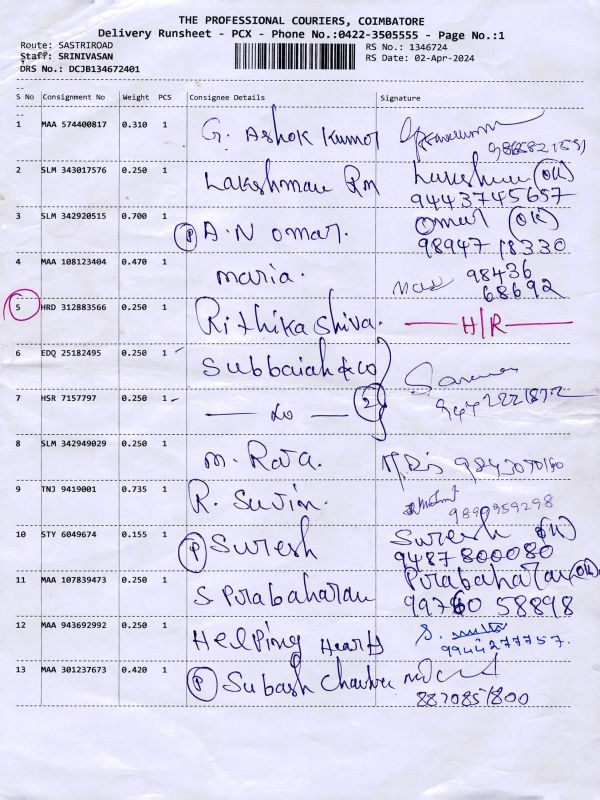 THE PROFESSIONAL COURIERS, COIMBATORE
Delivery Runsheet - PCX - Phone No.:0422-3505555 - Page No.:1
Route: SASTRIROAD RS No.: 1346724
Staff: SRINIVASAN RS Date: 02-Apr-2024
DRS No.: DCJB134672401
S No Consignment No Weight PCS Consignee Details Signature
1 MAA 574400817 0.310 1 G. Ashok Kumar
2 SLM 343017576 0.250 1 Lakshman Rm OK
9443745657
3 SLM 342920515 0.700 1 P A.N omar. Omar OK
98947 18330
4 MAA 108123404 0.470 1 maria. 98436
68692
5 HRD 312883566 0.250 1 Rithika Shiva. H/R
6 EDQ 25182495 0.250 1 Subbaiah & co
7 HSR 7157797 0.250 1 do 2
8 SLM 342949029 0.250 1 m. Raja.
9 TNJ 9419001 0.735 1 R. Suvin. 9890959298
10 STY 6049674 0.155 1 P Suresh Suresh OK
9487800080
11 MAA 107839473 0.250 1 S Prabaharan Prabaharan OK
99760 58898
12 MAA 943692992 0.250 1 Helping Heart S.
9944277757.
13 MAA 301237673 0.420 1 P Subash
8870851800